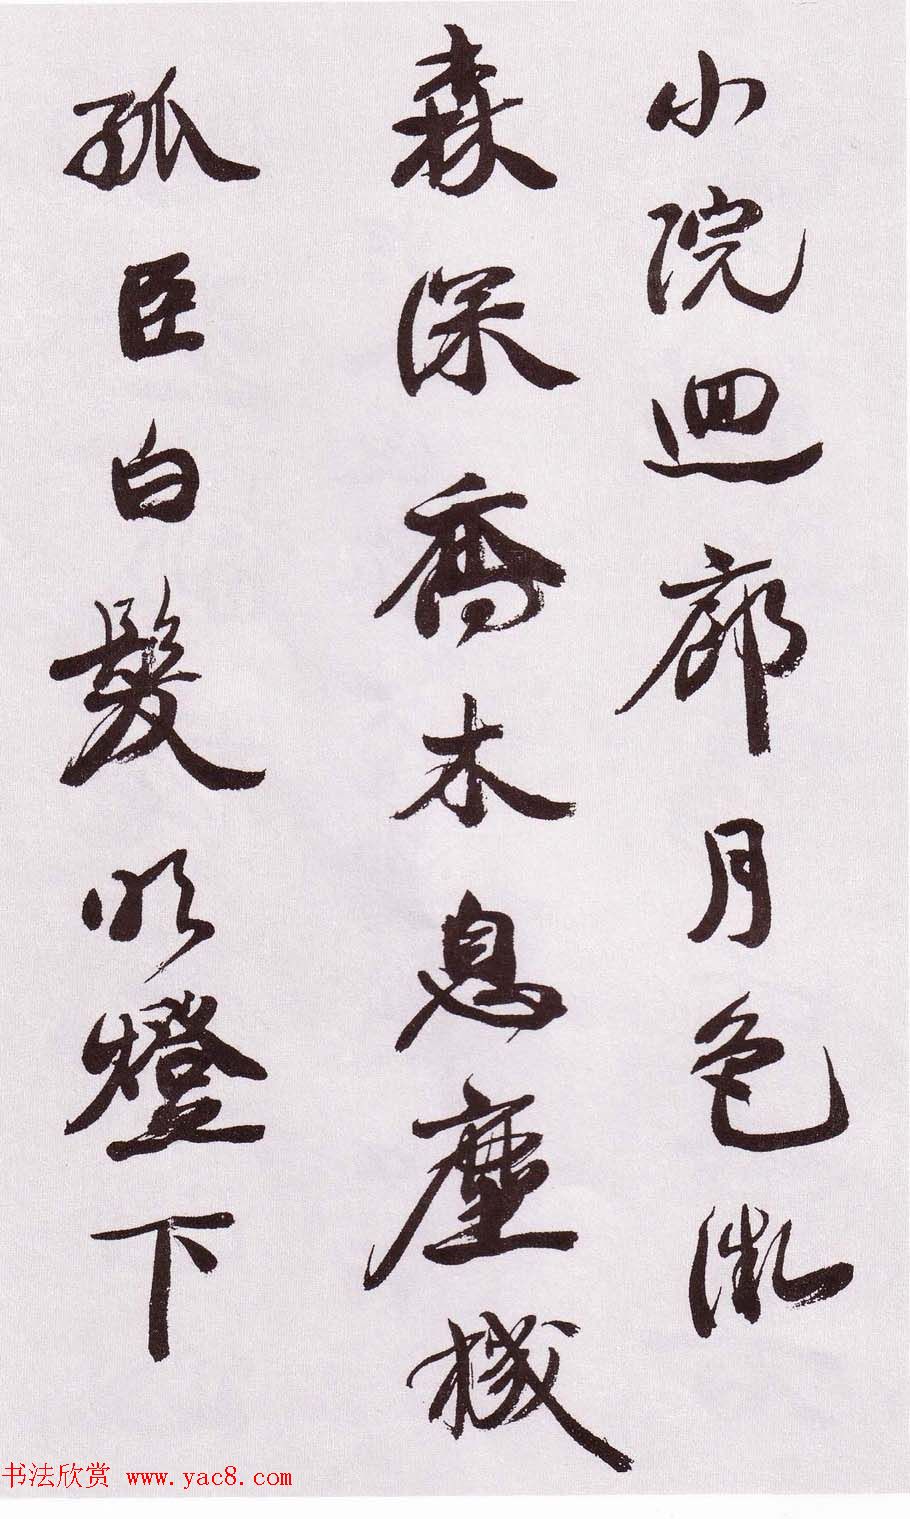 小院迴廊月色微
森深喬木息塵機
孤臣白髮明燈下
书法欣赏 www.yac8.com